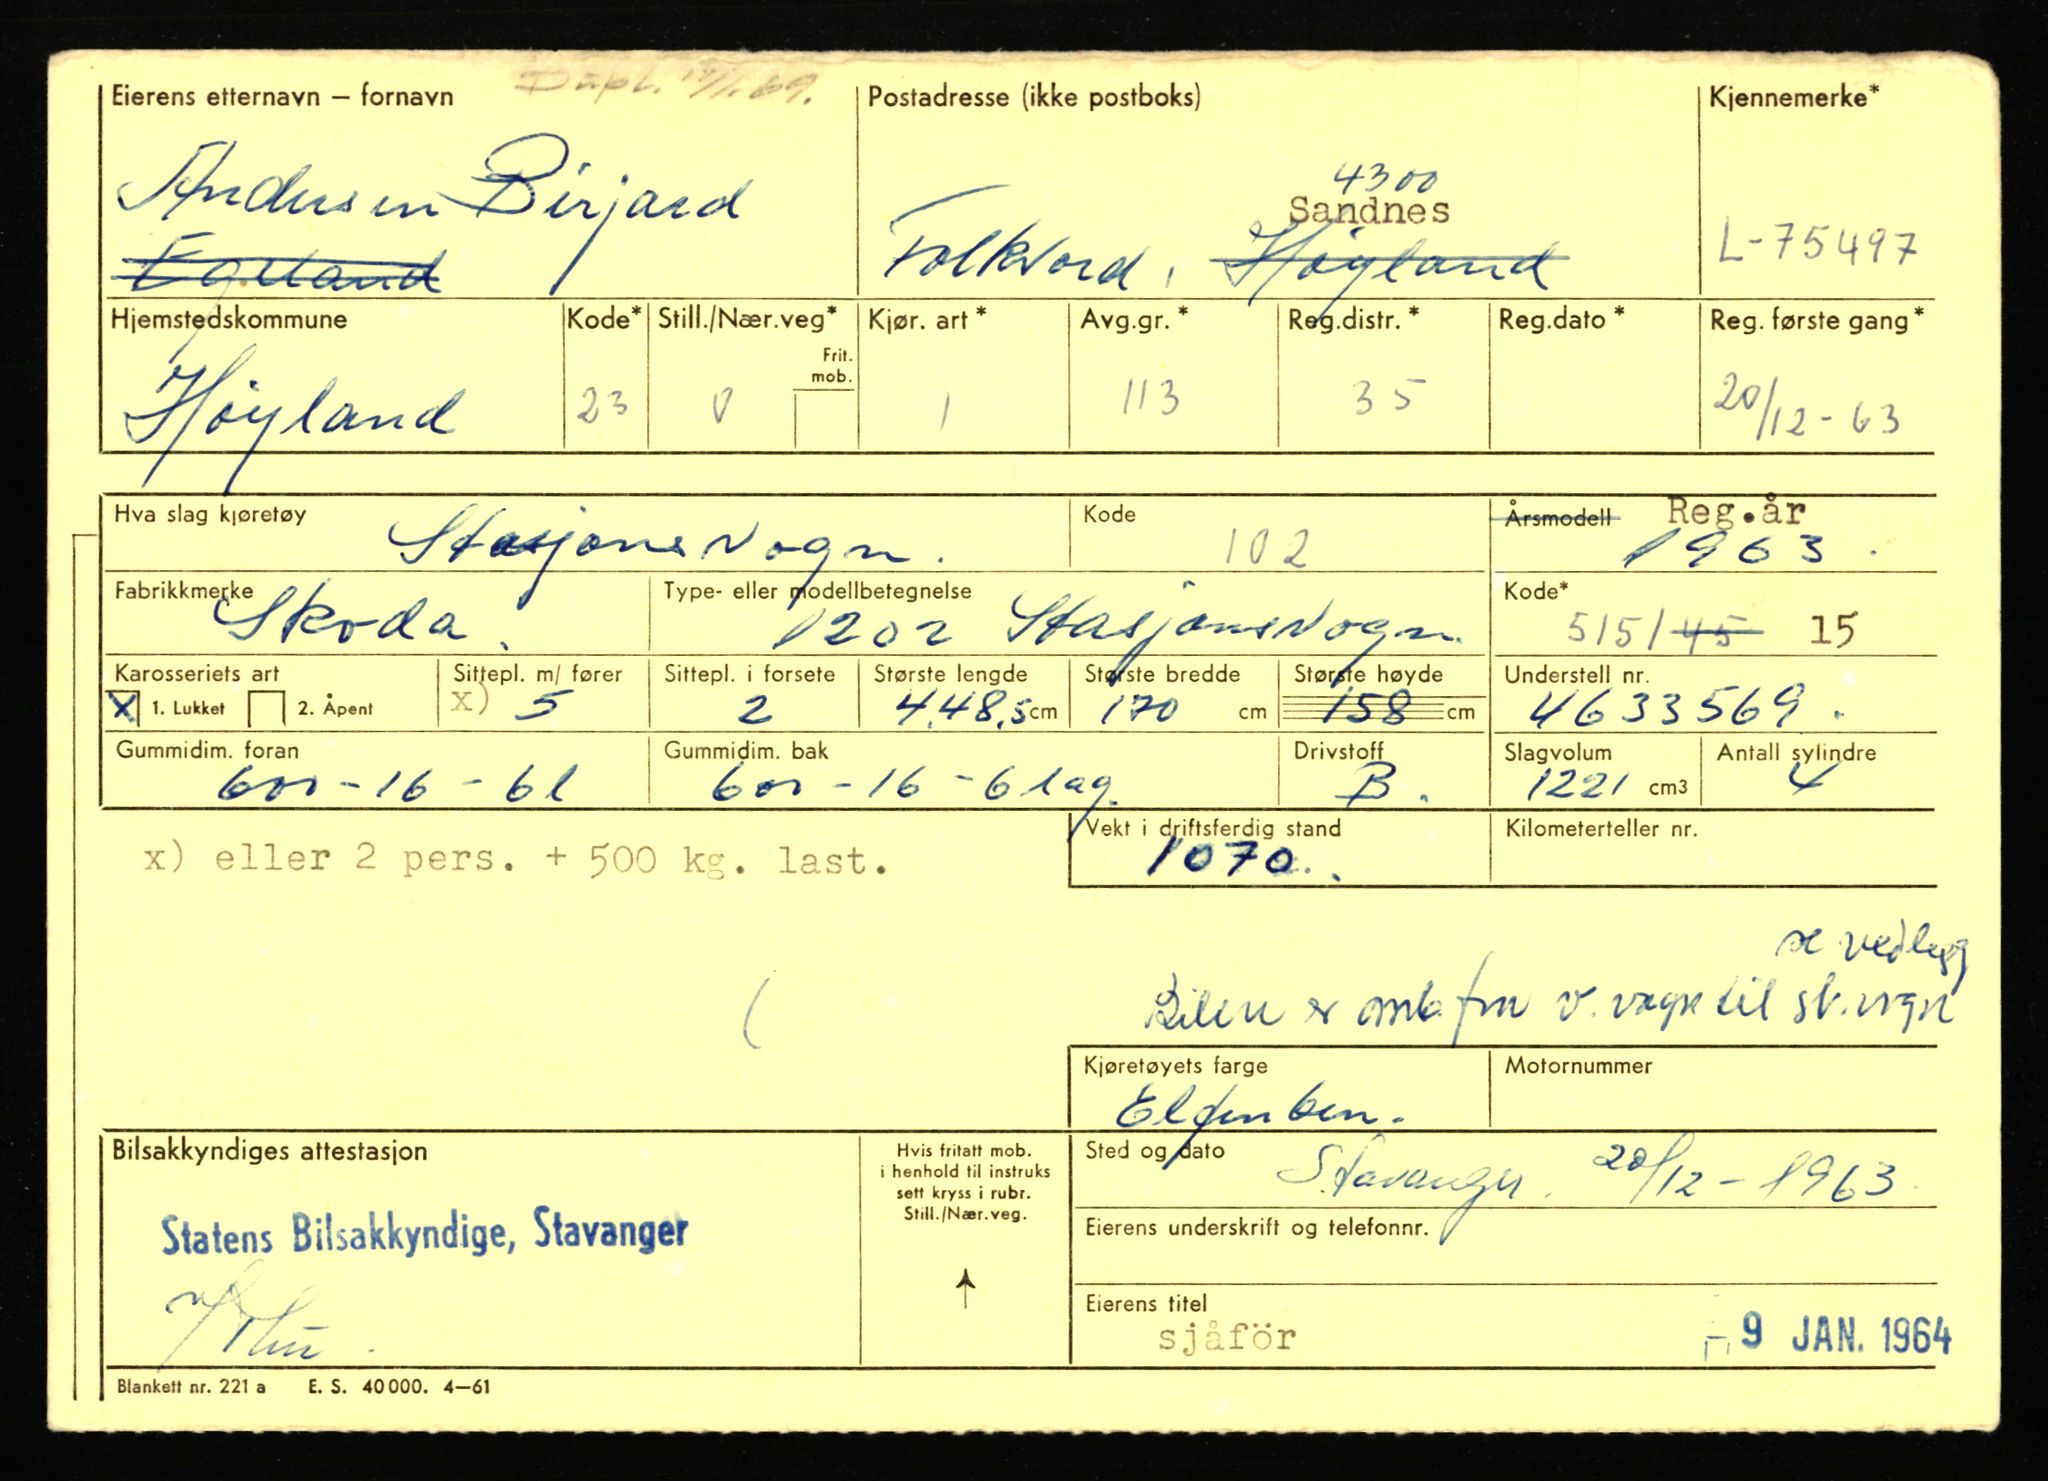 Dupl. 17/1.69.
Eierens etternavn – fornavn
Postadresse (ikke postboks)
Kjennemerke*
Andersen Birjard
Egeland
4300
Sandnes
Folkvord, Høyland
L-75497
Hjemstedskommune Kode* Still./Nær.veg* Kjør. art* Avg.gr.* Reg.distr.* Reg.dato* Reg. første gang*
Frit. mob.
Høyland 23 0 1 113 35 20/12-63
Hva slag kjøretøy Stasjonsvogn.
Kode 102
Årsmodell Reg.år
1963.
Fabrikkmerke Skoda.
Type- eller modellbetegnelse 1202 Stasjonsvogn.
Kode* 515/45 15
Karosseriets art Sittepl. m/ fører Sittepl. i forsete Største lengde Største bredde Største høyde Understell nr.
X 1. Lukket 2. Åpent x) 5 2 448,5 cm 170 cm 158 cm 4633569.
Gummidim. foran Gummidim. bak Drivstoff Slagvolum Antall sylindre
600-16-6l 600-16-6lag. B. 1221 cm3 4
Vekt i driftsferdig stand Kilometerteller nr.
x) eller 2 pers. + 500 kg. last.
1070.
se vedlegg
Bilen er omb. fra v.vogn til st.vogn
Kjøretøyets farge Motornummer
Elfenben.
Bilsakkyndiges attestasjon
Hvis fritatt mob.
i henhold til instruks
sett kryss i rubr.
Still./Nær.veg.
Sted og dato Stavanger. 20/12-1963.
Statens Bilsakkyndige, Stavanger
Eierens underskrift og telefonnr.
↑
Eierens titel
sjåför
-9 JAN. 1964
Blankett nr. 221 a E. S. 40 000. 4–61